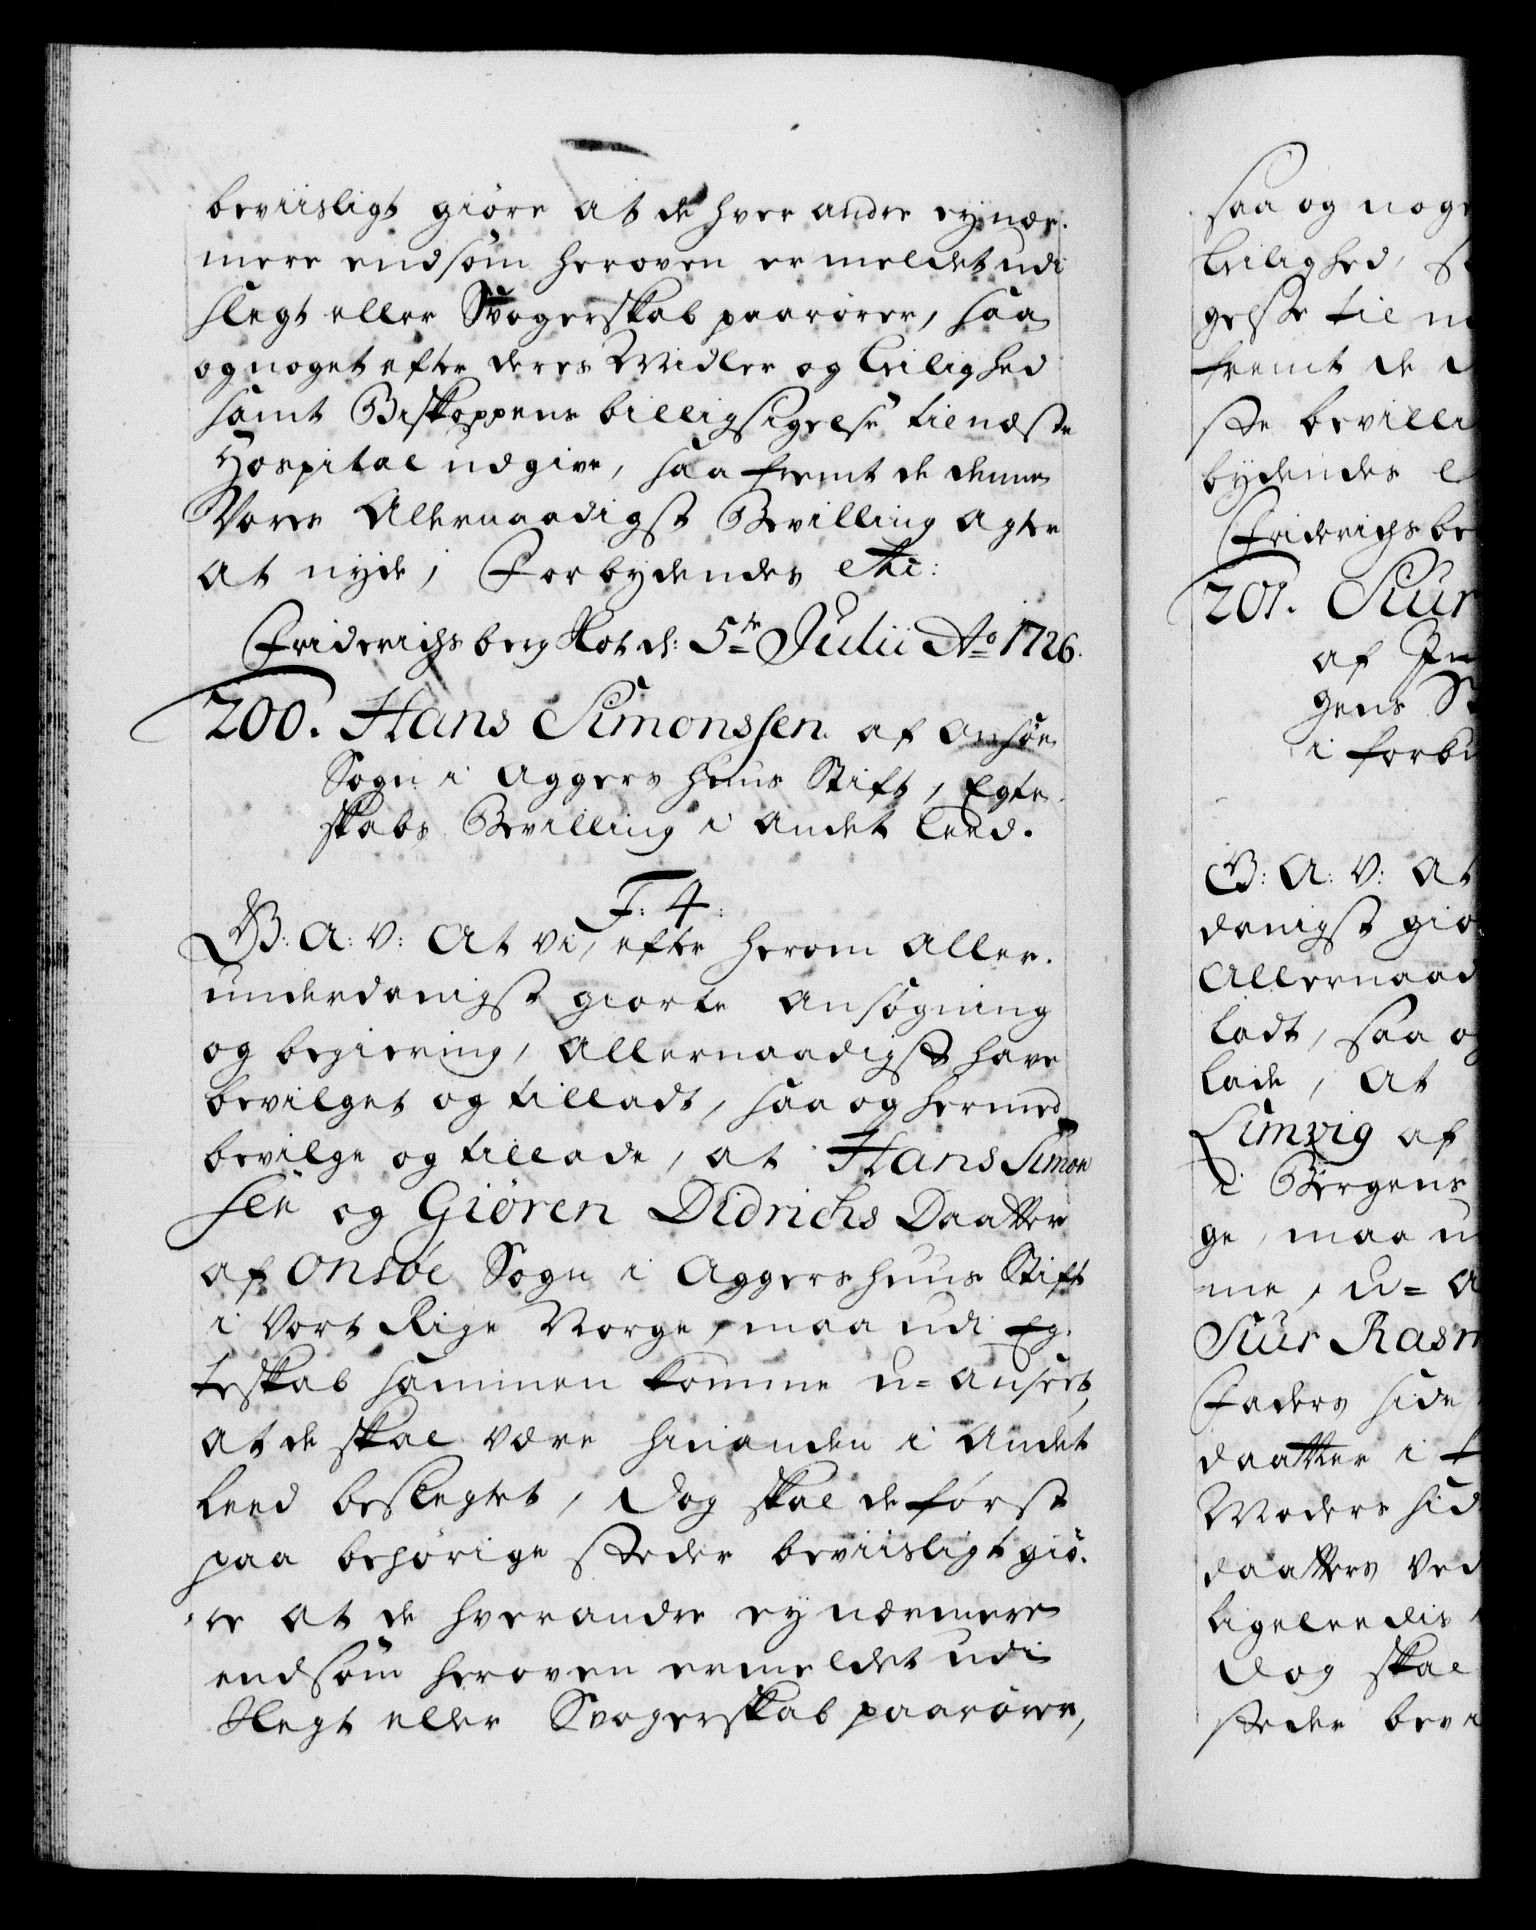 beviisligt giöre at de hver andre ey nær-
mere end som heroven er meldet udi
slegt eller Svogerskab paarører, saa
og noget efter deres Midler og Leilighed
samt Biskoppens billigsigelse til næste
Hospital udgive, saa fremt de denne
Vores Allernaadigst Bevilling agter
at nyde, Forbydendes etc:
Friderichsberg Slot d: 5te Julii Ao 1726.
200. Hans Simonssen af Onsöe
Sogn i Aggershuus Stift, Egte-
skabs Bevilling i andet Leed.
F: 4
G: A: V: At vi, efter herom aller-
underdanigst giorte ansøgning
og begiering, Allernaadigst have
bevilget og tilladt, saa og hermed
bevilge og tillade, at Hans Simon
sen og Giøren Didrichs Daatter
af Onsöe Sogn i Aggershuus Stift
i Vort Rige Norge, maa udi Eg-
teskab sammen komme u-anseet,
at de skal være hinanden i andet
Leed beslegtet, Dog skal de først
paa behørige steder beviisligt giö-
re at de hverandre ey nærmere
end som heroven ermeldet udi
Slegt eller Svogerskab paarører,
saa og noge
Leilighed, s
gelse til n
fremt de d
ste bevilli
bydendes e
Friderichsbe
201. Siur
af
gens St
i forbu
G: A: V: At
danigst gio
Allernaad
ladt, saa og
lade, at
Limvig af
i Bergens
ge, maa u
me, u-a
Siur Rasm
Faders side
daatter i f
Moders sid
daatters Ved
ligeleedis
Dog skal
steder bevi